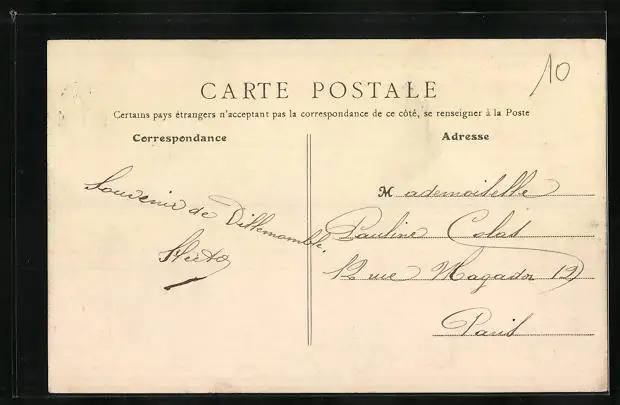 10
CARTE POSTALE
Certains pays étrangers n'acceptant pas la correspondance de ce côté, se renseigner à la Poste
Correspondance
Adresse
Souvenir de Villemomble.
Mademoiselle
Pauline Colas
12 rue Mogador 12
Paris